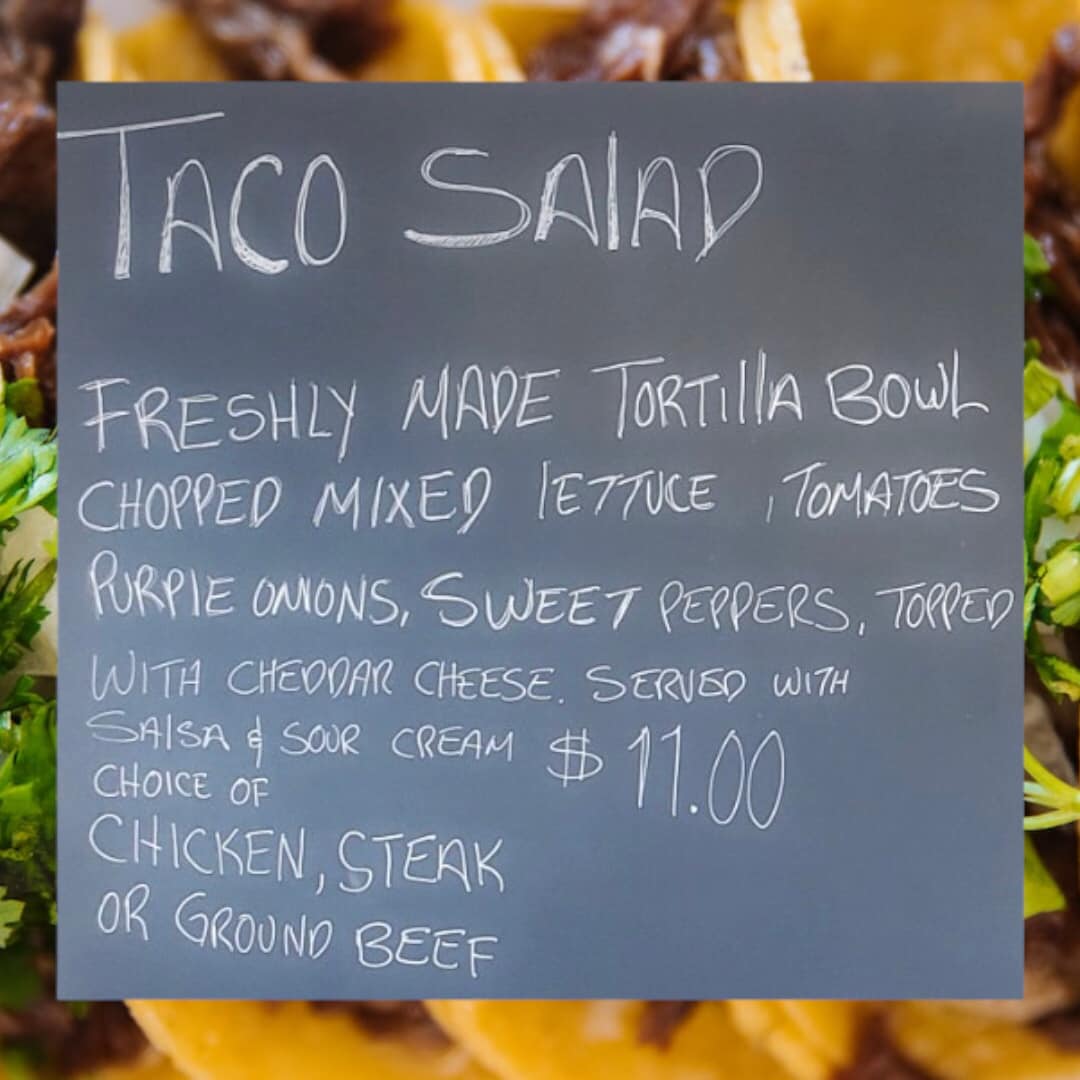 TACO SALAD
FRESHLY MADE TORTILLA BOWL
CHOPPED MIXED LETTUCE , TOMATOES
PURPLE ONIONS, SWEET PEPPERS, TOPPED
WITH CHEDDAR CHEESE. SERVED WITH
SALSA & SOUR CREAM $ 11.00
CHOICE OF
CHICKEN, STEAK
OR GROUND BEEF